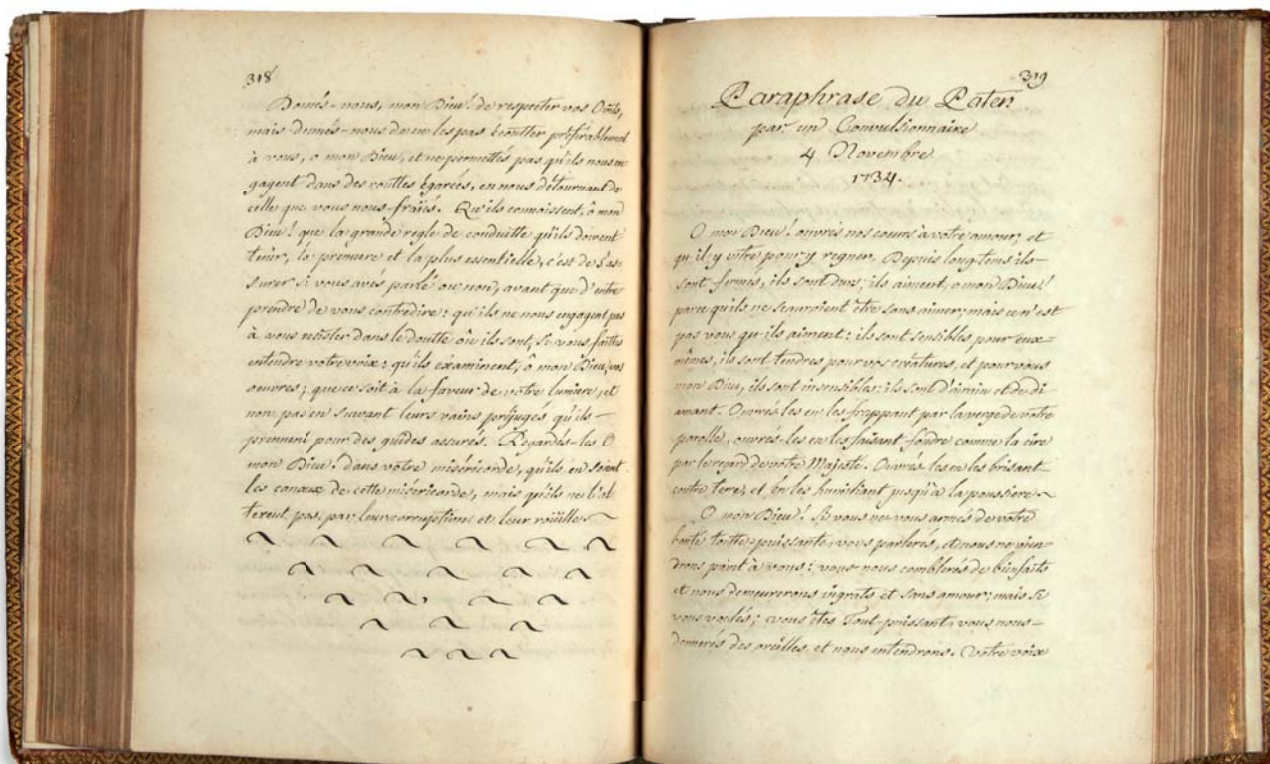 318
Donnés-nous, mon Dieu! de respecter vos Oints,
mais donnés-nous de ne les pas écoutter préférablement
à vous, o mon Dieu, et ne permettés pas qu'ils nous en
gagent dans des routtes égarées, en nous détournant de
celle que vous nous fraiés. Qu'ils connoissent, ô mon
Dieu! que la grande regle de conduitte qu'ils doivent
tenir, la premiere et la plus essentielle, c'est de s'as-
surer si vous avés parlé ou non, avant que d'entre
prendre de vous contredire: qu'ils ne nous engagent pas
à vous resister dans le doutte où ils sont, si vous faittes
entendre votre voix: qu'ils éxaminent, ô mon Dieu, vos
oeuvres; que ce soit à la faveur de votre lumiere, et
non pas en suivant leurs vains préjugés qu'ils
prennent pour des guides assurés. Regardés-les O
mon Dieu! dans votre miséricorde, qu'ils en soient
les canaux de cette miséricorde, mais qu'ils ne l'al
terent pas par leur corruption et leur roüille
319
Paraphrase du Pater
par un Convulsionnaire
4 Novembre
1734.
O mon Dieu! ouvres nos coeurs à votre amour, et
qu'il y entre pour y regner. Depuis long-tems ils
sont fermés, ils sont durs; ils aiment, o mon Dieu!
parce qu'ils ne scauroient être sans aimer; mais ce n'est
pas vous qu'ils aiment: ils sont sensibles pour eux-
mêmes, ils sont tendres pour vos créatures, et pour vous
mon Dieu, ils sont insensibles: ils sont d'airain et de di
amant. Ouvrés les en les frappant par la verge de votre
parolle, ouvrés-les en les faisant fondre comme la cire
par le regard de votre Majesté. Ouvrés les en les brisant
contre terre, et en les humiliant jusqu'à la poussiere
O mon Dieu! Si vous ne vous armés de votre
bonté toutte-puissante, vous parlerés, et nous ne vien-
drons point à vous: vous nous comblerés de bienfaits
et nous demeurerons ingrats et sans amour; mais si
vous voulés; vous êtes Tout-puissant, vous nous
donnerés des oreilles, et nous entendrons. Votre voix